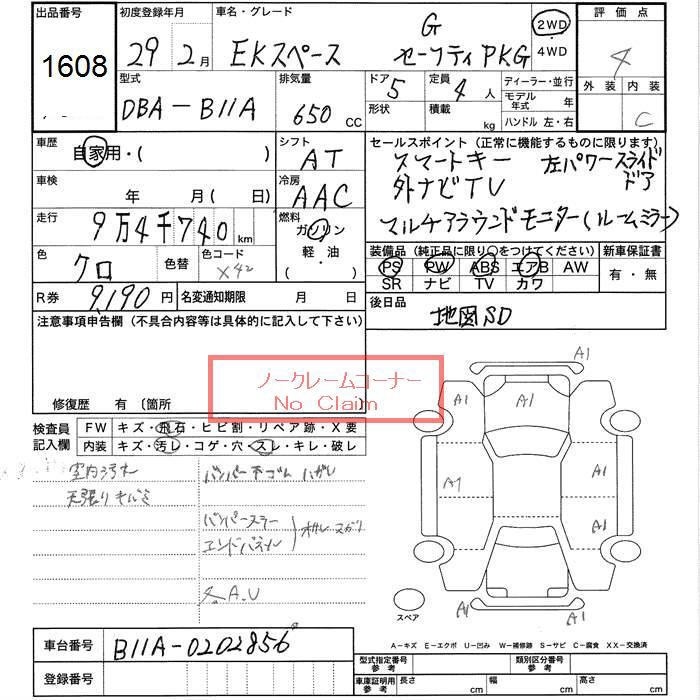 出品番号
1608
初度登録年月
29年 2月
車名・グレード
EKスペース
G
セーフティPKG
2WD
4WD
評価点
4
外装 内装
C
型式
DBA-B11A
排気量
650 CC
ドア 5
形状
定員 4人
積載 kg
ディーラー・並行
モデル年式 年
ハンドル 左・右
車歴
自家用・( )
シフト
AT
セールスポイント (正常に機能するものに限ります)
スマートキー 左パワースライドドア
外ナビTV
マルチアラウンドモニター(ルームミラー)
車検
年 月( 日)
冷房
AAC
走行
9万4千740km
燃料
ガソリン
軽・油
・( )
色
クロ
色替
色コード
X42
装備品 (純正品に限り○をつけてください)
新車保証書
PS PW ABS エアB AW
SR ナビ TV カワ
有・無
R券 9,190円
名変通知期限 月 日
後日品
地図SD
注意事項申告欄 (不具合内容等は具体的に記入して下さい)
ノークレームコーナー
No Claim
修復歴 有 〔箇所 〕
検査員記入欄
FW キズ・飛石・ヒビ割・リペア跡・X要
内装 キズ・汚レ・コゲ・穴・スレ・キレ・破レ
室内汚れ
天張りキバミ
バンパー下ゴム ハガレ
バンパーステー
エンドパネル
各A.U
A1
A1
A1
A1
A1
A1
A1
A1
スペア
車台番号
B11A-0202856
登録番号
A-キズ E-エクボ U-凹み W-補修跡 S-サビ C-腐食 XX-交換済
型式指定番号参考
類別区分番号参考
車庫証明用参考
長さ cm
幅 cm
高さ cm